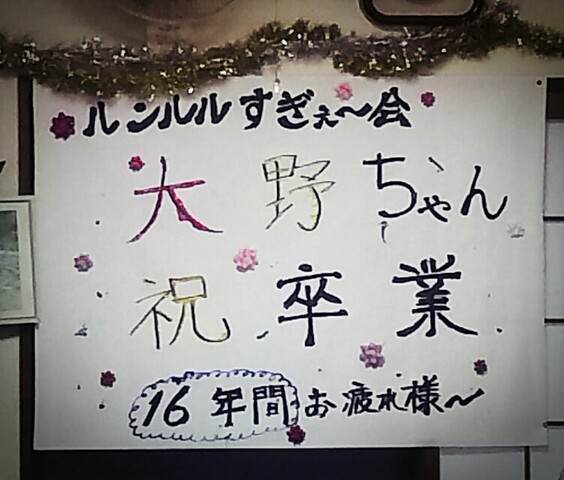 ルンルルすぎぇ〜会
大野ちゃん
祝卒業
16年間お疲れ様〜